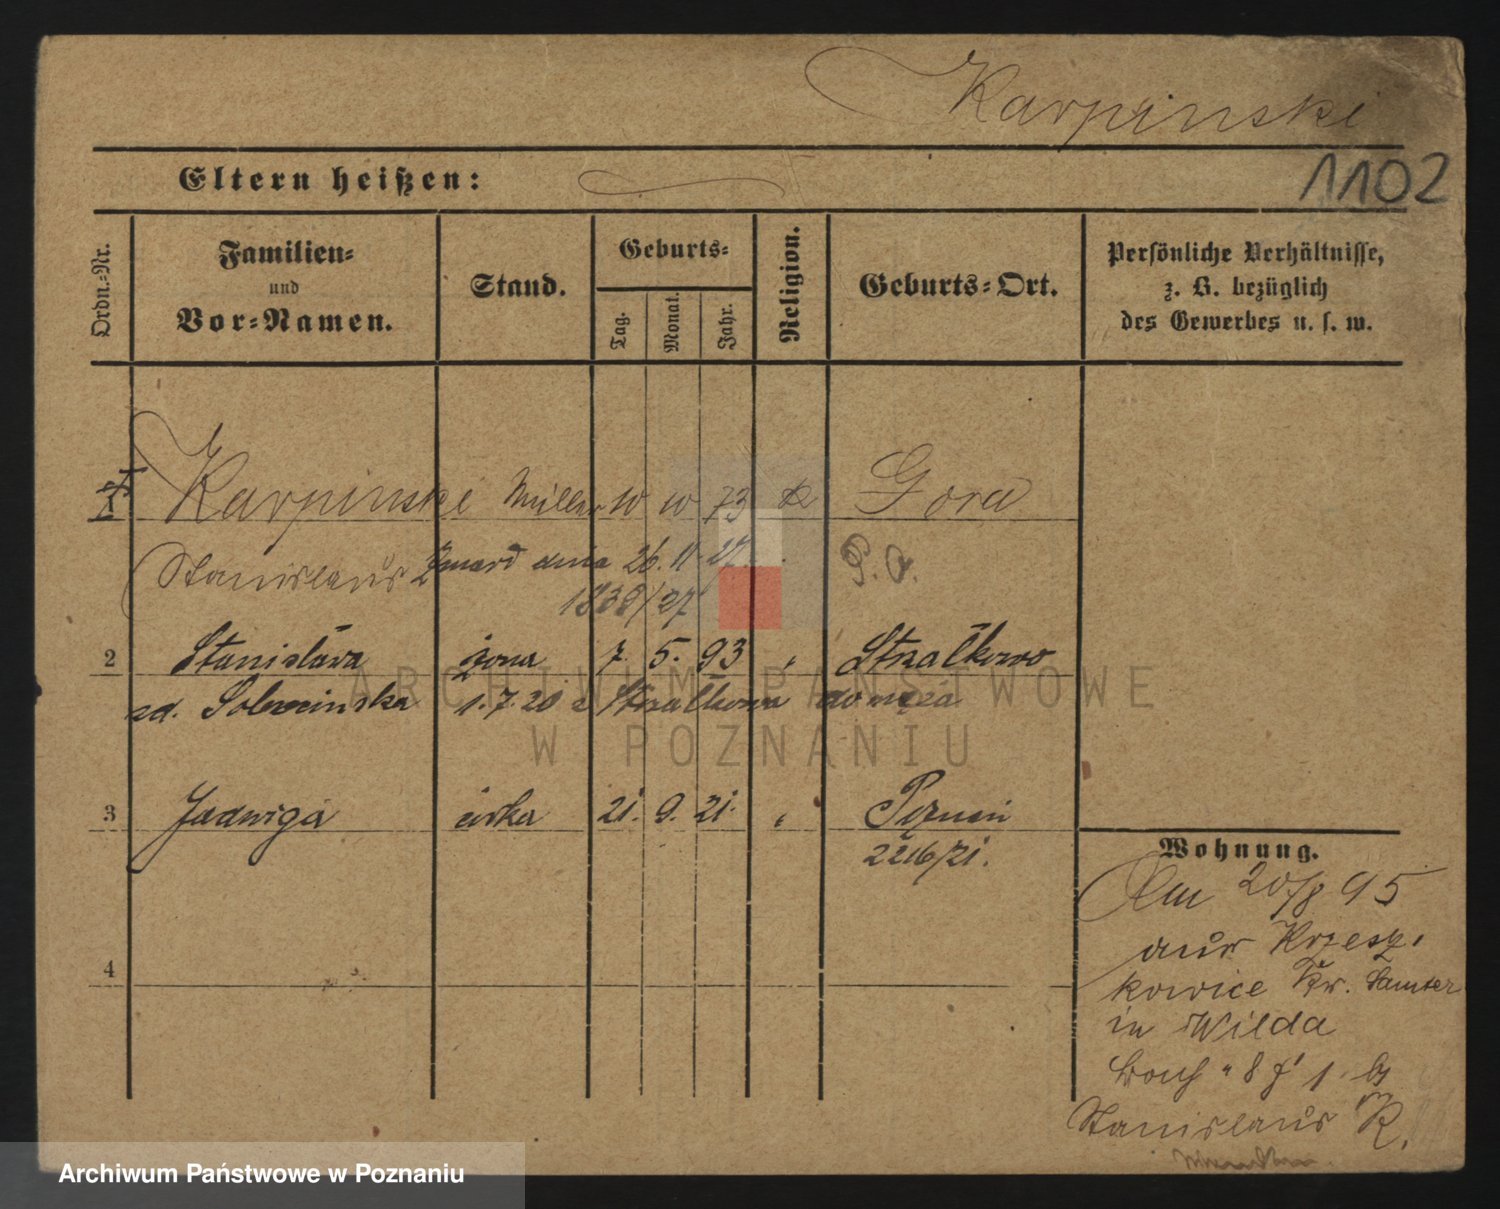 Karpinski
Eltern heißen:
1102
Ordn.-Nr.
Familien-
und
Vor-Namen.
Stand.
Geburts-
Tag.
Monat.
Jahr.
Religion.
Geburts-Ort.
Persönliche Verhältnisse,
z. B. bezüglich
des Gewerbes u. s. w.
Karpinski Müller 73 k Gora
Stanislaus Zmarł dnia 26. 11. 27. P. a.
1838/27
2 Stanisława żona 7. 5. 93 " Strzałkowo
1.7.20 z Strzałkowa do męża
3 Jadwiga córka 21. 9. 21. " Poznań
2216/21.
Wohnung.
Am 20/8 95
aus Krzesz-
kowice Kr. Samter
in Wilda
Stanislaus K.
4
ARCHIWUM PAŃSTWOWE
W POZNANIU
Archiwum Państwowe w Poznaniu